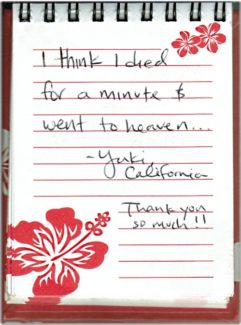 I think I died
for a minute &
went to heaven...
-Yuki
California
Thank you
so much!!